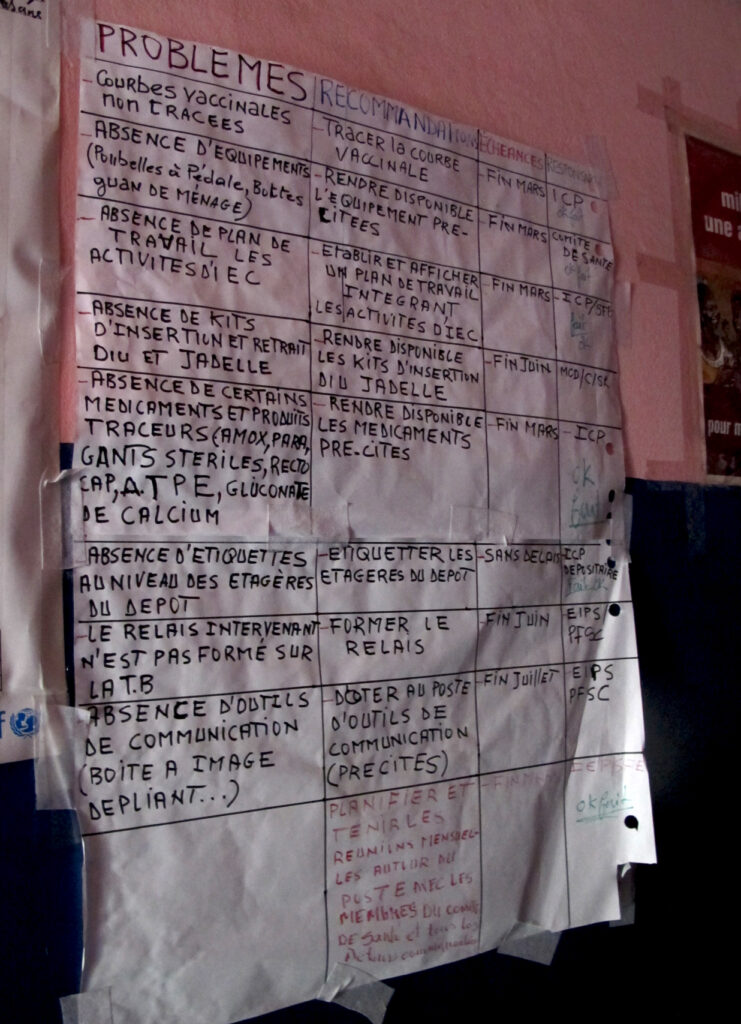 PROBLEMES
RECOMMANDATIONS
ECHEANCES
-COURBES VACCINALES
NON TRACEES
-TRACER la COURBE
VACCINALE
-FIN MARS
ICP
-ABSENCE D'EQUIPEMENTS
(Poubelles à Pédale, Bottes
guan DE MÉNAGE)
-RENDRE DISPONIBLE
L'EQUIPEMENT PRE-
CITEES
-FIN MARS
COMITE
DE SANTE
-ABSENCE DE PLAN DE
TRAVAIL LES
ACTIVITES D'IEC
-ETABLIR ET AFFICHER
UN PLAN DE TRAVAIL
INTEGRANT
LES ACTIVITES D'IEC
-FIN MARS
-ICP/SFE
-ABSENCE DE KITS
D'INSERTION ET RETRAIT
DIU ET JADELLE
-RENDRE DISPONIBLE
LES KITS D'INSERTION
DIU JADELLE
-FIN JUIN
MCD/C/SR
-ABSENCE DE CERTAINS
MEDICAMENTS ET PRODUITS
TRACEURS (AMOX, PARA,
GANTS STERILES, RECTO
CAP, A.TPE, GLUCONATE
DE CALCIUM
-RENDRE DISPONIBLE
LES MEDICAMENTS
PRE-CITES
-FIN MARS
-ICP
OK
ABSENCE D'ETIQUETTES
AU NIVEAU DES ETAGÈRES
DU DEPOT
-ETIQUETTER LES
ETAGERES DU DEPOT
-SANS DELAIS
ICP
DEPOSITAIRE
-LE RELAIS INTERVENANT
N'EST PAS FORMÉ SUR
LA T.B
-FORMER LE
RELAIS
-FIN JUIN
EIPS/
PFSC
ABSENCE D'OUTILS
DE COMMUNICATION
(BOITE A IMAGE
DEPLIANT...)
-DOTER AU POSTE
D'OUTILS DE
COMMUNICATION
(PRECITES)
-FIN JUILLET
-EIPS
PFSC
PLANIFIER ET
TENIR LES
REUNIONS MENSUEL-
LES AUTOUR DU
POSTE AVEC LES
MEMBRES DU COMITE
DE Santé et tous les
-FIN MARS
ok fait
mil
une a
pour m